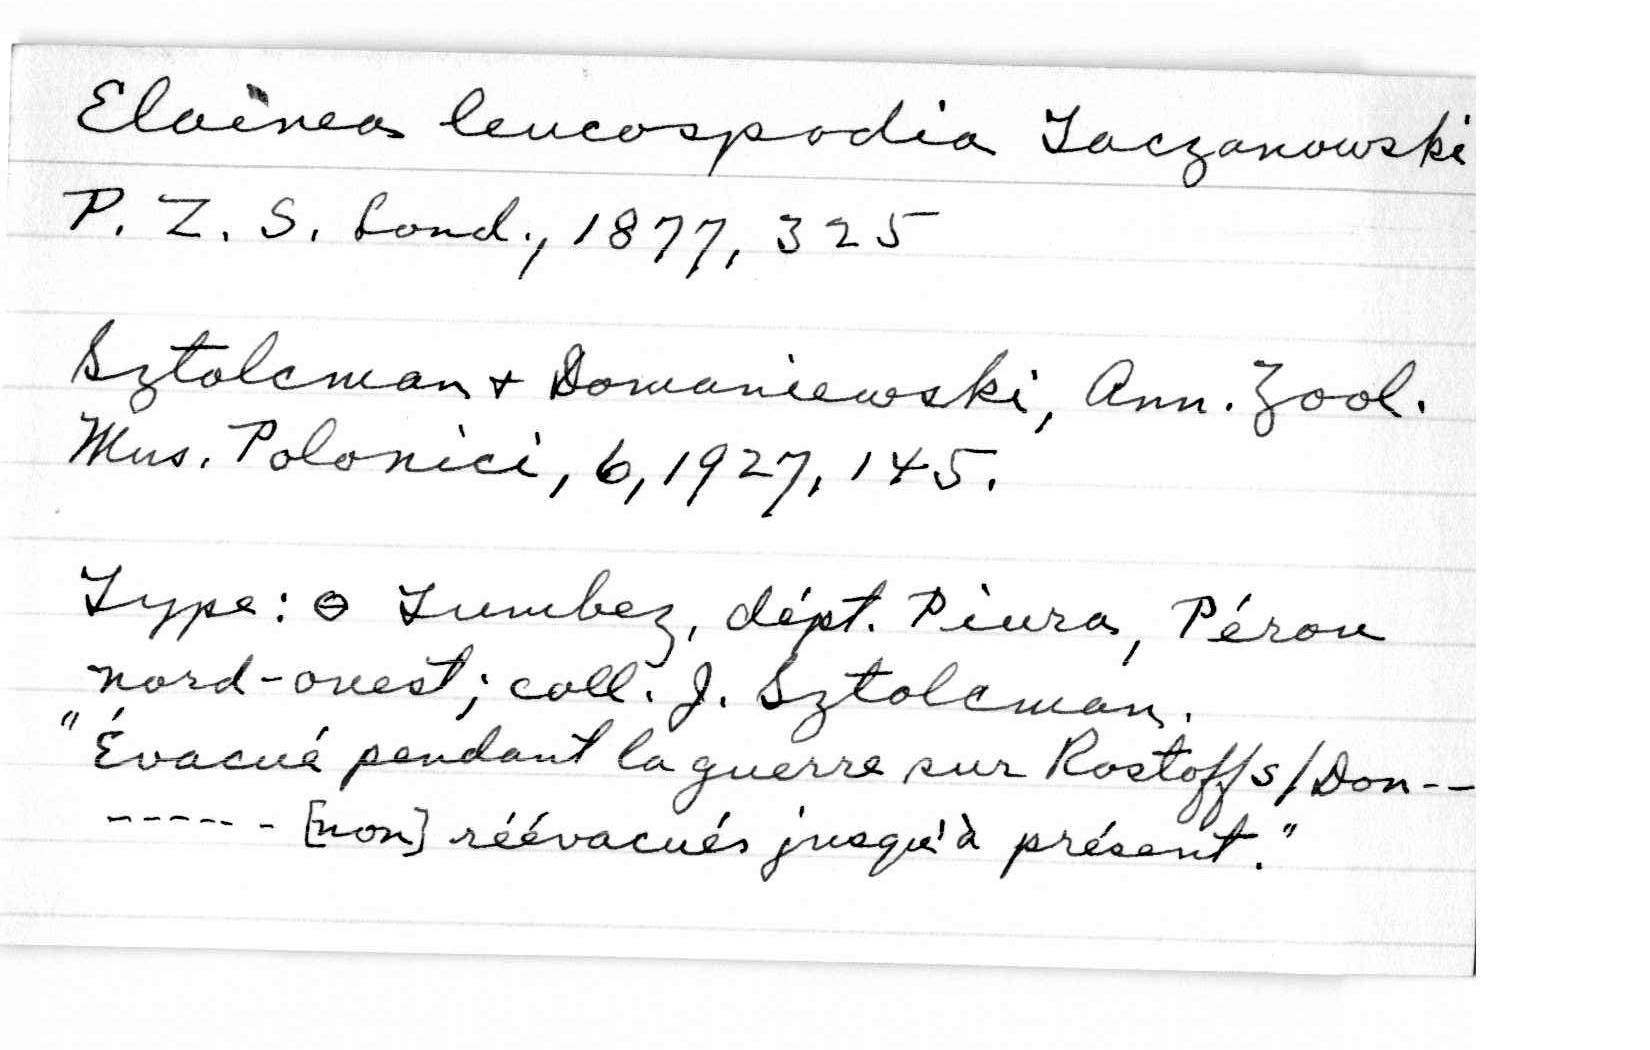 Elainea leucospodia Taczanowski
P. Z. S. Lond., 1877, 325
Sztolcman + Domaniewski, Ann. Zool.
Mus. Polonici, 6, 1927, 145.
Type: ⊖ Tumbez, dépt. Piura, Pérou
nord-ouest; coll. J. Sztolcman.
"Évacué pendant la guerre sur Rostoff s/Don--
------ [non] réévacués jusqu'à présent."